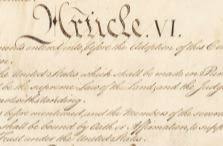 Article. VI.
ents entered into, before the Adoption of this Con
the United States which shall be made in Pur
be the supreme Law of the Land; and the Judge
notwithstanding.
before mentioned, and the Members of the several
shall be bound by Oath or Affirmation, to sup
Trust under the United States.